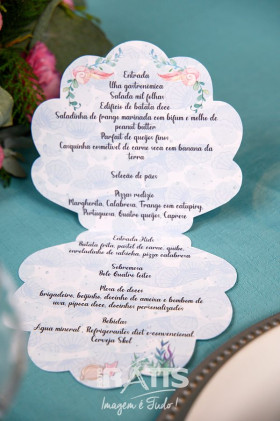 Entrada
Ilha gastronômica
Salada mil folhas
Edifício de batata doce
Saladinha de frango marinada com bifum e molho de
peanut butter
Parfait de queijos finos
Casquinha comestível de carne seca com banana da
terra
Seleção de pães
Pizzas rodízio
Margherita, Calabresa, Frango com catupiry,
Portuguesa, Quatro queijos, Caprese
Entrada Kids
Batata frita, pastel de carne, quibe,
enroladinho de salsicha, pizza calabresa
Sobremesa
Bolo Quatro leites
Mesa de doces
brigadeiro, beijinho, docinho de ameixa e bombom de
uva, pipoca doce, docinhos personalizados
Bebidas
Água mineral, Refrigerantes diet e convencional
Cerveja Skol
RATIS
Imagem é Tudo!